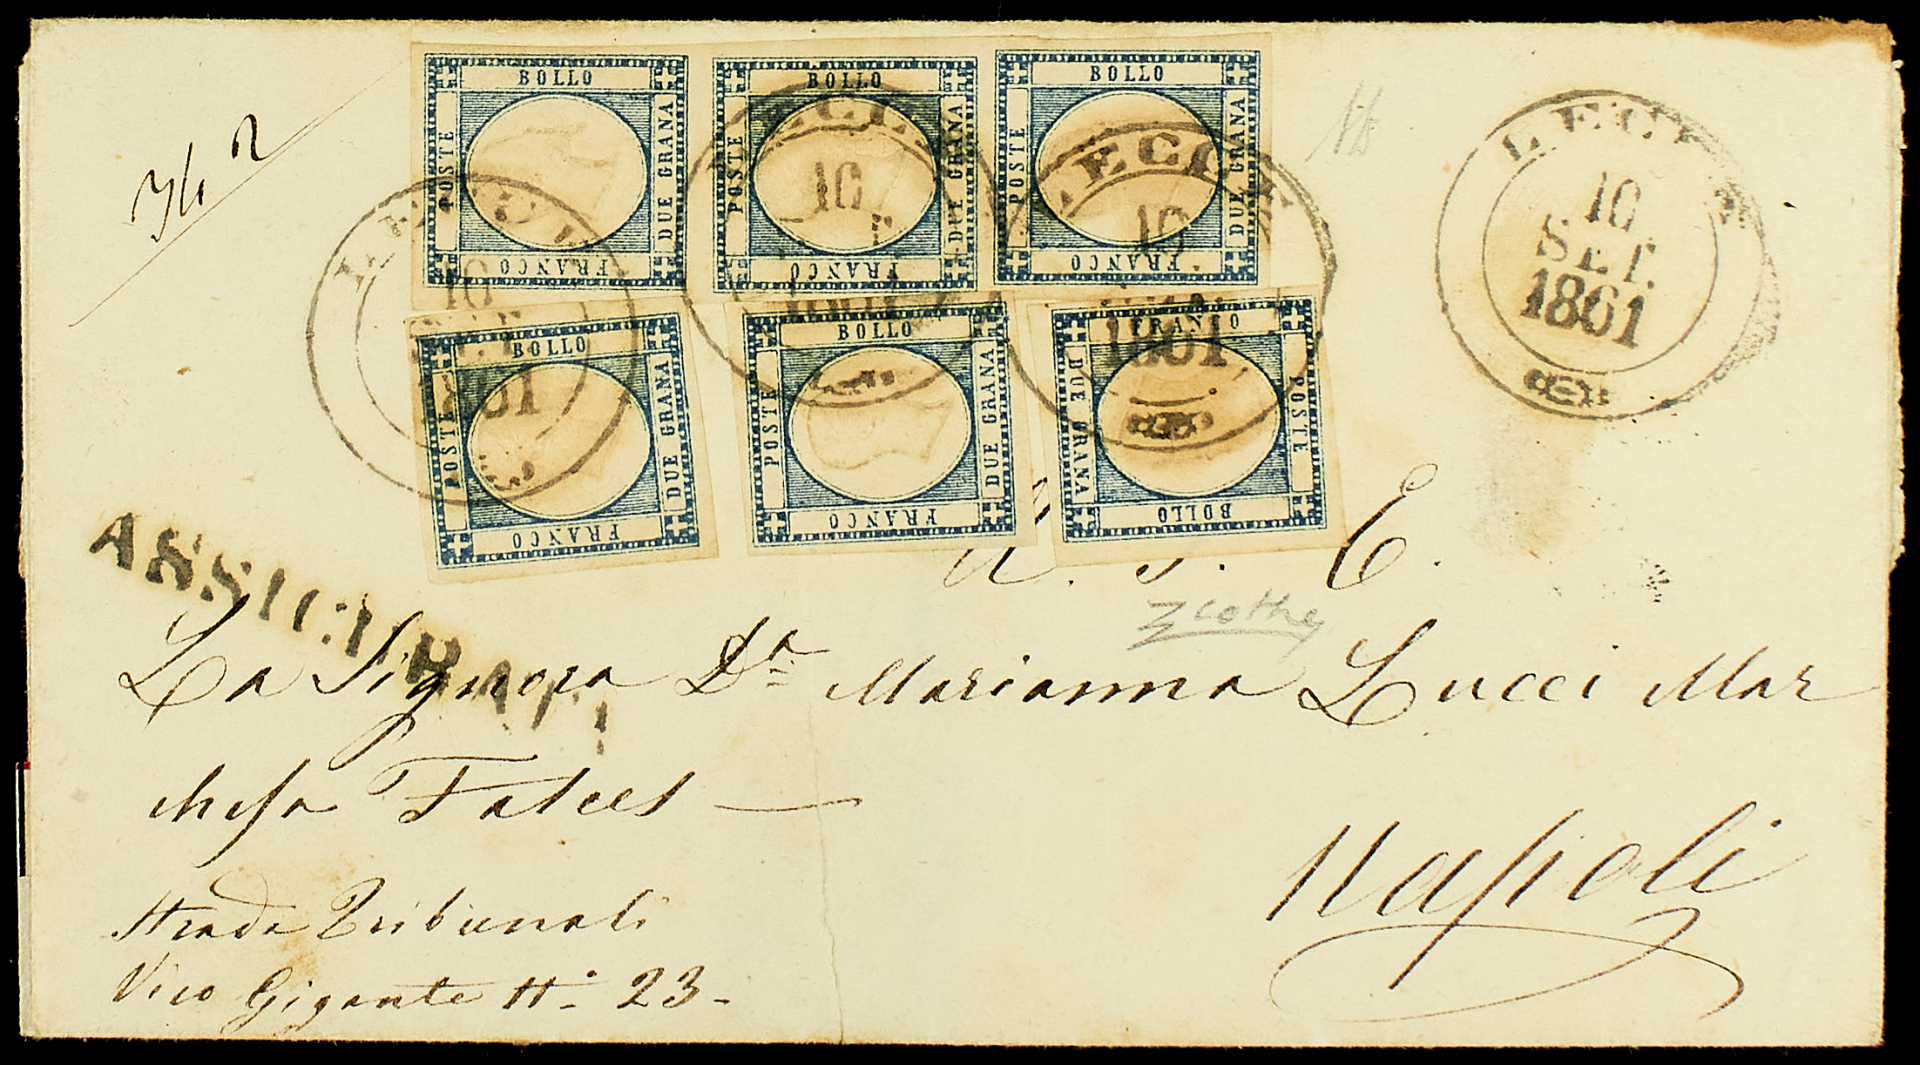 BOLLO
POSTE
DUE GRANA
FRANCO
BOLLO
POSTE
DUE GRANA
FRANCO
BOLLO
POSTE
DUE GRANA
FRANCO
BOLLO
POSTE
DUE GRANA
FRANCO
BOLLO
POSTE
DUE GRANA
FRANCO
FRANCO
DUE GRANA
POSTE
BOLLO
LECCE
10
SET.
1861
LECCE
10
LECCE
10
1861
LECCE
10
SET.
1861
ASSICURATA
A. S. E.
La Signora Da Marianna Lucci Mar
chesa Falces
Napoli
Strada Tribunali
Vico Gigante N. 23